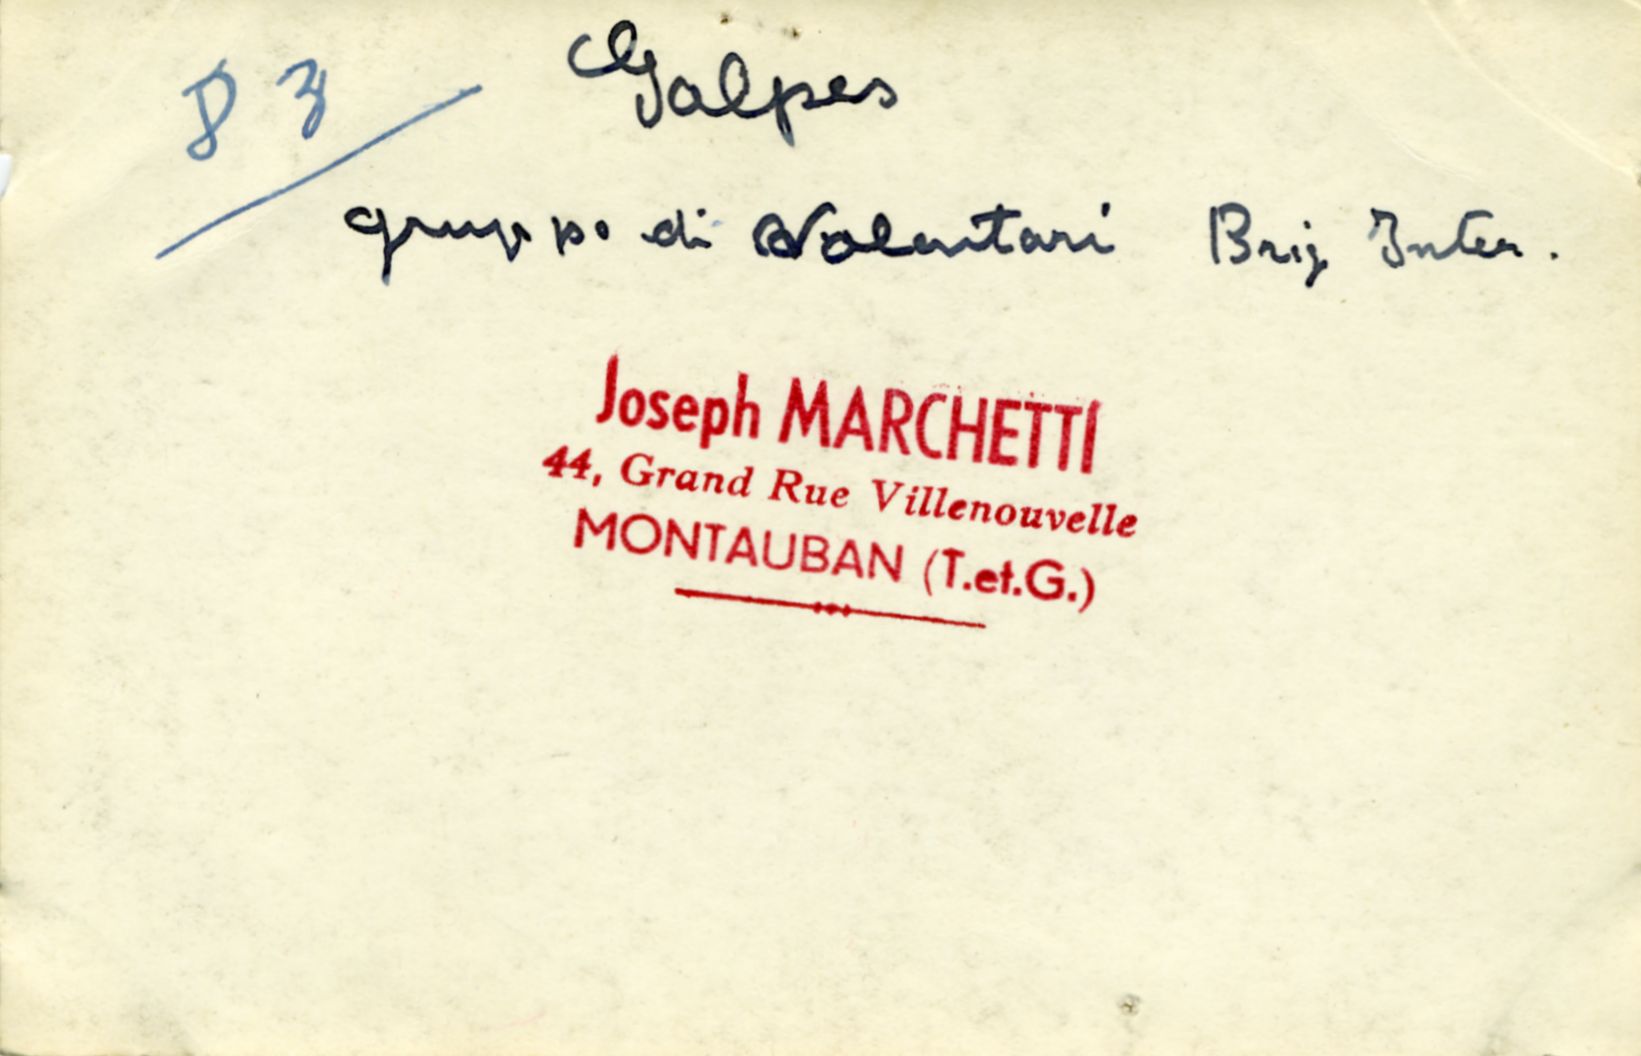 83
Galpes
gruppo di Volontari Brig Inter.
Joseph MARCHETTI
44, Grand Rue Villenouvelle
MONTAUBAN (T.et.G.)